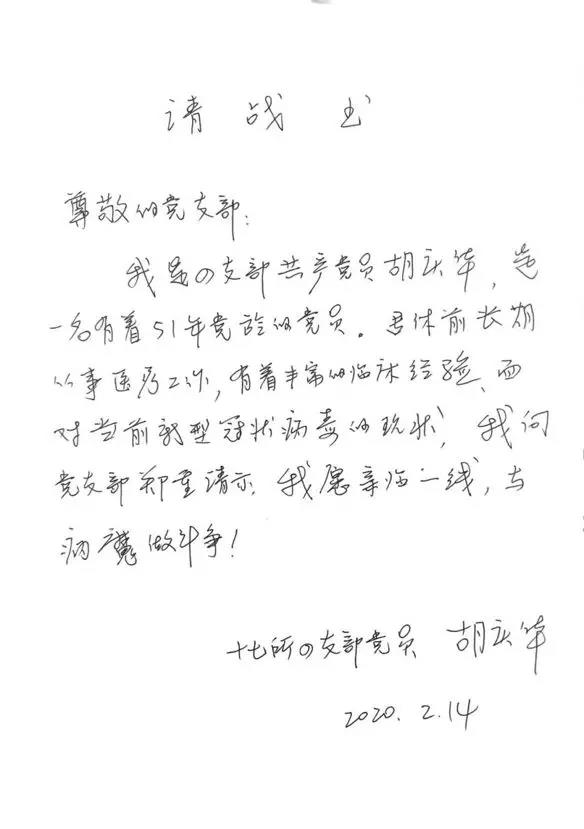 请战书
尊敬的党支部：
我是四支部共产党员胡庆华，是
一名有着51年党龄的党员。退休前长期
从事医务工作，有着丰富的临床经验、面
对当前新型冠状病毒的现状，我向
党支部郑重请示，我愿亲临一线，与
病魔做斗争！
十七所四支部党员 胡庆华
2020.2.14